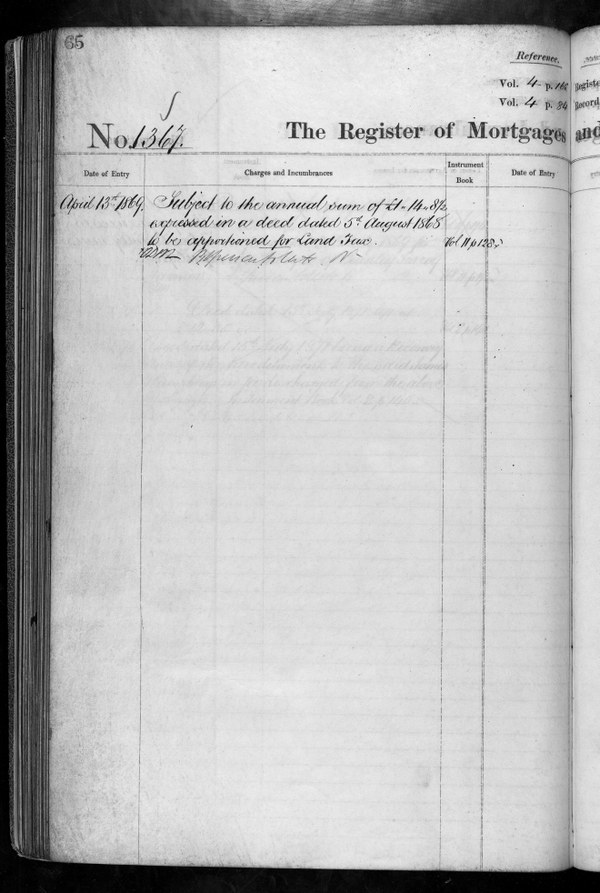 65
Reference.
Vol. 4 p.
Vol. 4 p. 34
No. 1367.
The Register of Mortgages and
Date of Entry
Charges and Incumbrances
Instrument
Book
Date of Entry
April 13th 1869.
Subject to the annual sum of £1 " 14 " 8½
expressed in a deed dated 5th August 1868
to be apportioned for Land Tax.
Vol 11 p 128